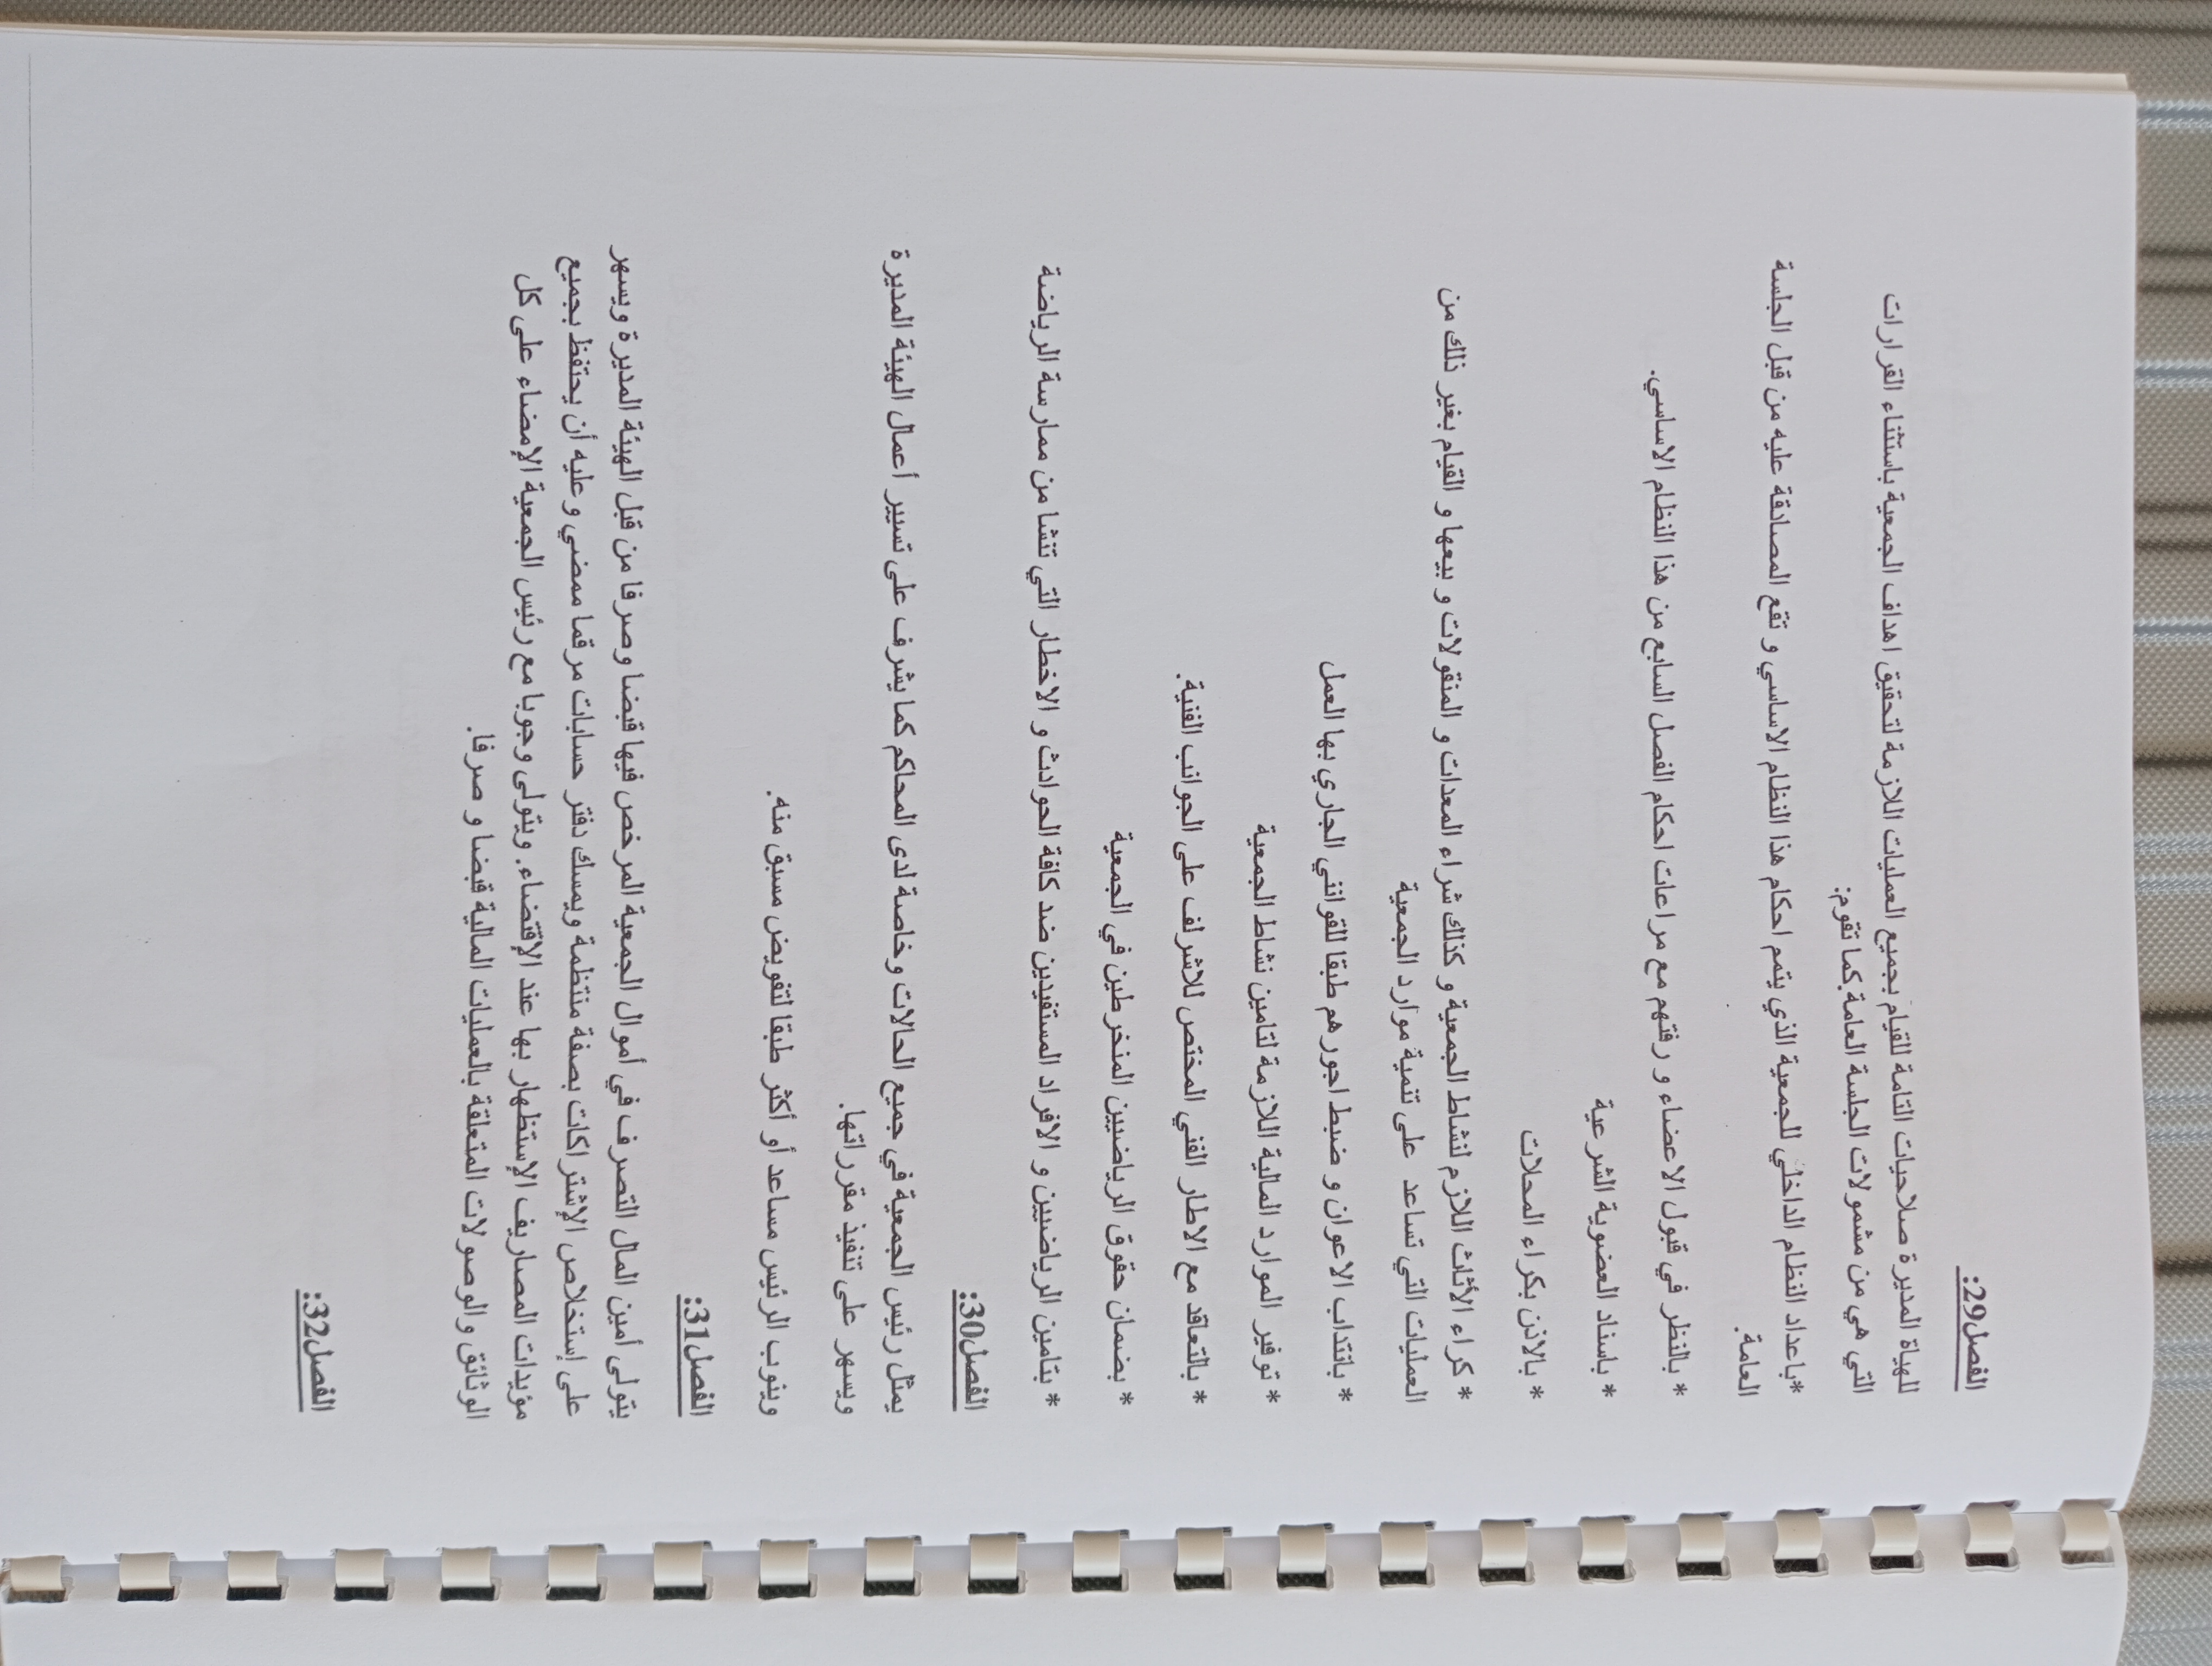 الفصل29:
للهياة المديرة صلاحيات التامة للقيام بجميع العمليات اللازمة لتحقيق اهداف الجمعية باستثناء القرارات
التي هي من مشمولات الجلسة العامة كما تقوم:
*باعداد النظام الداخلي للجمعية الذي يتمم احكام هذا النظام الاساسي و تقع المصادقة عليه من قبل الجلسة
العامة.
* بالنظر في قبول الاعضاء و رفتهم مع مراعات احكام الفصل السابع من هذا النظام الاساسي.
* باسناد العضوية الشرعية
* بالاذن بكراء المحلات
* كراء الأثاث اللازم لنشاط الجمعية و كذلك شراء المعدات و المنقولات و بيعها و القيام بغير ذلك من
العمليات التي تساعد على تنمية موارد الجمعية
* بانتداب الاعوان و ضبط اجورهم طبقا للقوانني الجاري بها العمل
* توفير الموارد المالية اللازمة لتامين نشاط الجمعية
* بالتعاقد مع الاطار الفني المختص للاشرلف على الجوانب الفنية.
* بضمان حقوق الرياضيين المنخرطين في الجمعية
* بتامين الرياضيين و الافراد المستفيدين ضد كافة الحوادث و الاخطار التي تنشا من ممارسة الرياضة
الفصل30:
يمثل رئيس الجمعية في جميع الحالات وخاصة لدى المحاكم كما يشرف على تسيير أعمال الهيئة المديرة
ويسهر على تنفيذ مقرراتها.
وينوب الرئيس مساعد أو أكثر طبقا لتفويض مسبق منه.
الفصل31:
يتولى أمين المال التصرف في أموال الجمعية المرخص فيها قبضا وصرفا من قبل الهيئة المديرة ويسهر
على إستخلاص الإشتراكات بصفة منتظمة ويمسك دفتر حسابات مرقما ممضي وعليه أن يحتفظ بجميع
مؤيدات المصاريف الإستظهار بها عند الإقتضاء. ويتولى وجوبا مع رئيس الجمعية الإمضاء على كل
الوثائق والوصولات المتعلقة بالعمليات المالية قبضا و صرفا.
الفصل32: